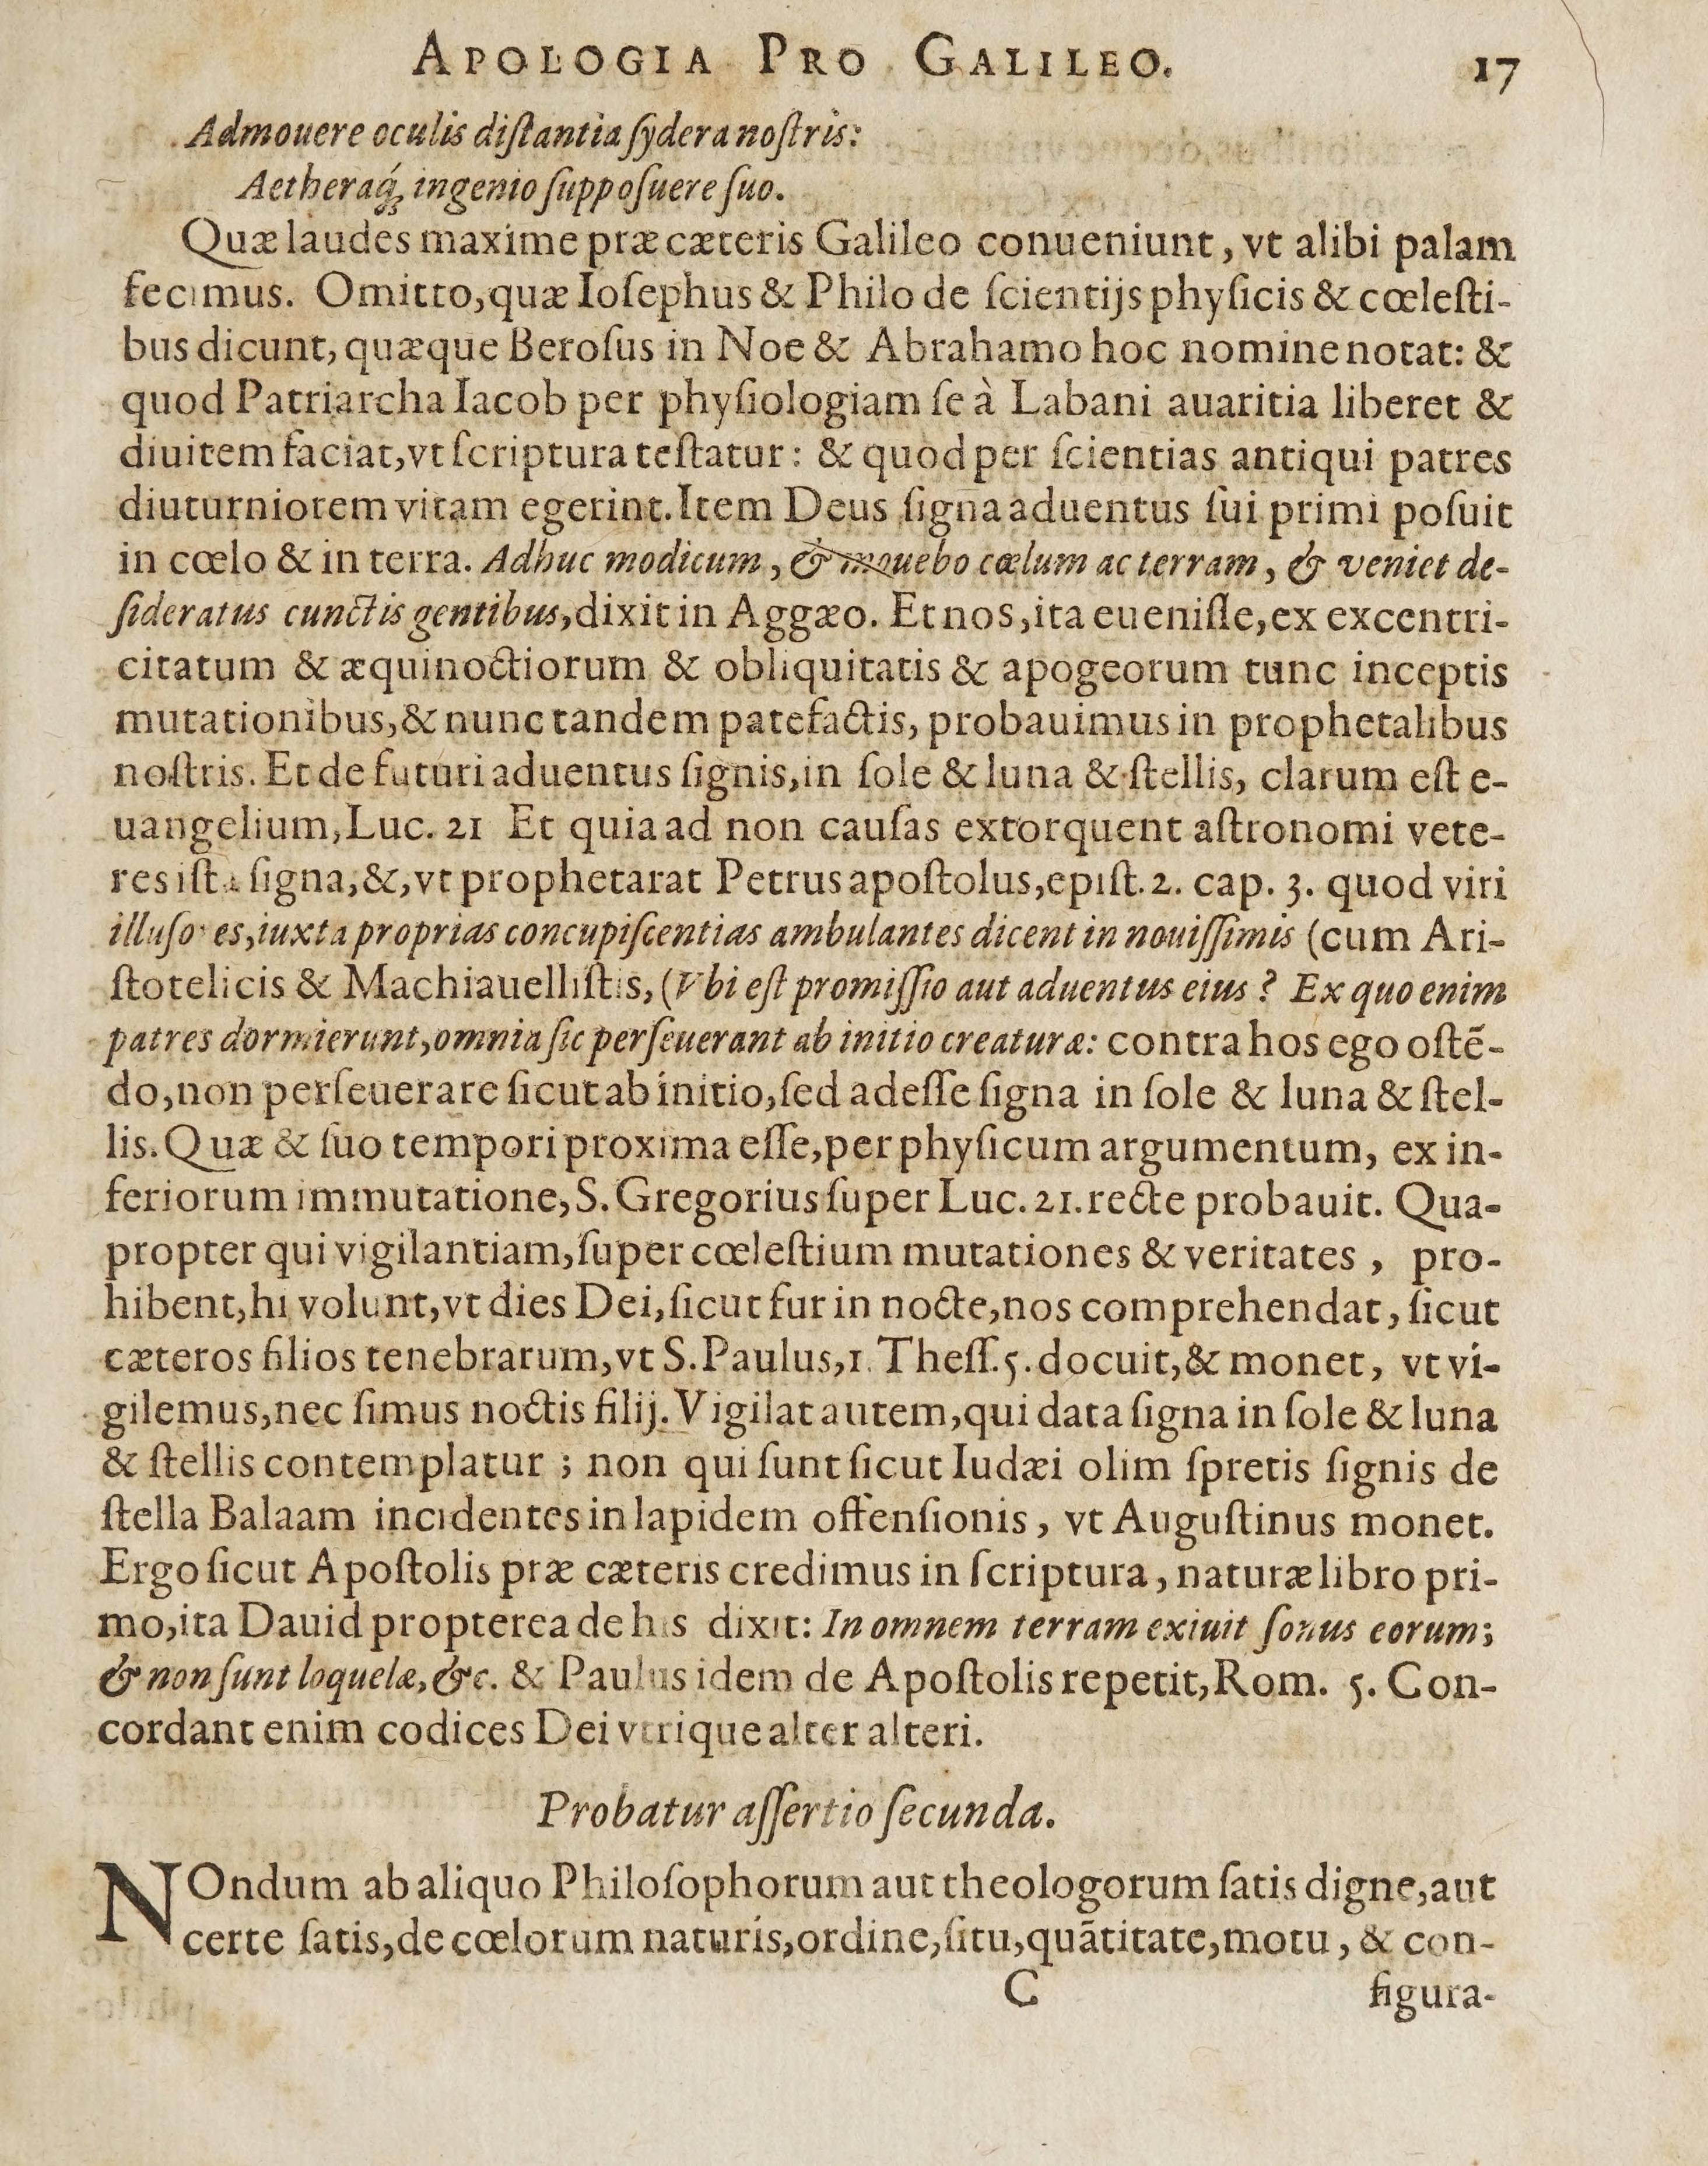 APOLOGIA PRO GALILEO. 17
Admouere oculis diſtantia ſydera noſtris:
Aetheraq́; ingenio ſuppoſuere ſuo.
Quæ laudes maxime præ cæteris Galileo conueniunt, vt alibi palam
fecimus. Omitto, quæ Ioſephus & Philo de ſcientijs phyſicis & cœleſti-
bus dicunt, quæque Beroſus in Noe & Abrahamo hoc nomine notat: &
quod Patriarcha Iacob per phyſiologiam ſe à Labani auaritia liberet &
diuitem faciat, vt ſcriptura teſtatur: & quod per ſcientias antiqui patres
diuturniorem vitam egerint. Item Deus ſigna aduentus ſui primi poſuit
in cœlo & in terra. Adhuc modicum, & mouebo cœlum ac terram, & veniet de-
ſideratus cunctis gentibus, dixit in Aggæo. Et nos, ita eueniſſe, ex excentri-
citatum & æquinoctiorum & obliquitatis & apogeorum tunc inceptis
mutationibus, & nunc tandem patefactis, probauimus in prophetalibus
noſtris. Et de futuri aduentus ſignis, in ſole & luna & ſtellis, clarum eſt e-
uangelium, Luc. 21 Et quia ad non cauſas extorquent aſtronomi vete-
res iſta ſigna, &, vt prophetarat Petrus apoſtolus, epiſt. 2. cap. 3. quod viri
illuſores, iuxta proprias concupiſcentias ambulantes dicent in nouiſſimis (cum Ari-
ſtotelicis & Machiauelliſtis, (Vbi eſt promiſſio aut aduentus eius? Ex quo enim
patres dormierunt, omnia ſic perſeuerant ab initio creaturæ: contra hos ego oſtẽ-
do, non perſeuerare ſicut ab initio, ſed adeſſe ſigna in ſole & luna & ſtel-
lis. Quæ & ſuo tempori proxima eſſe, per phyſicum argumentum, ex in-
feriorum immutatione, S. Gregorius ſuper Luc. 21. recte probauit. Qua-
propter qui vigilantiam, ſuper cœleſtium mutationes & veritates, pro-
hibent, hi volunt, vt dies Dei, ſicut fur in nocte, nos comprehendat, ſicut
cæteros filios tenebrarum, vt S. Paulus, 1. Theſſ. 5. docuit, & monet, vt vi-
gilemus, nec ſimus noctis filij. Vigilat autem, qui data ſigna in ſole & luna
& ſtellis contemplatur; non qui ſunt ſicut Iudæi olim ſpretis ſignis de
ſtella Balaam incidentes in lapidem offenſionis, vt Auguſtinus monet.
Ergo ſicut Apoſtolis præ cæteris credimus in ſcriptura, naturæ libro pri-
mo, ita Dauid propterea de his dixit: In omnem terram exiuit ſonus eorum;
& non ſunt loquelæ, &c. & Paulus idem de Apoſtolis repetit, Rom. 5. Con-
cordant enim codices Dei vtrique alter alteri.
Probatur aſſertio ſecunda.
NOndum ab aliquo Philoſophorum aut theologorum ſatis digne, aut
certe ſatis, de cœlorum naturis, ordine, ſitu, quãtitate, motu, & con-
C figura-